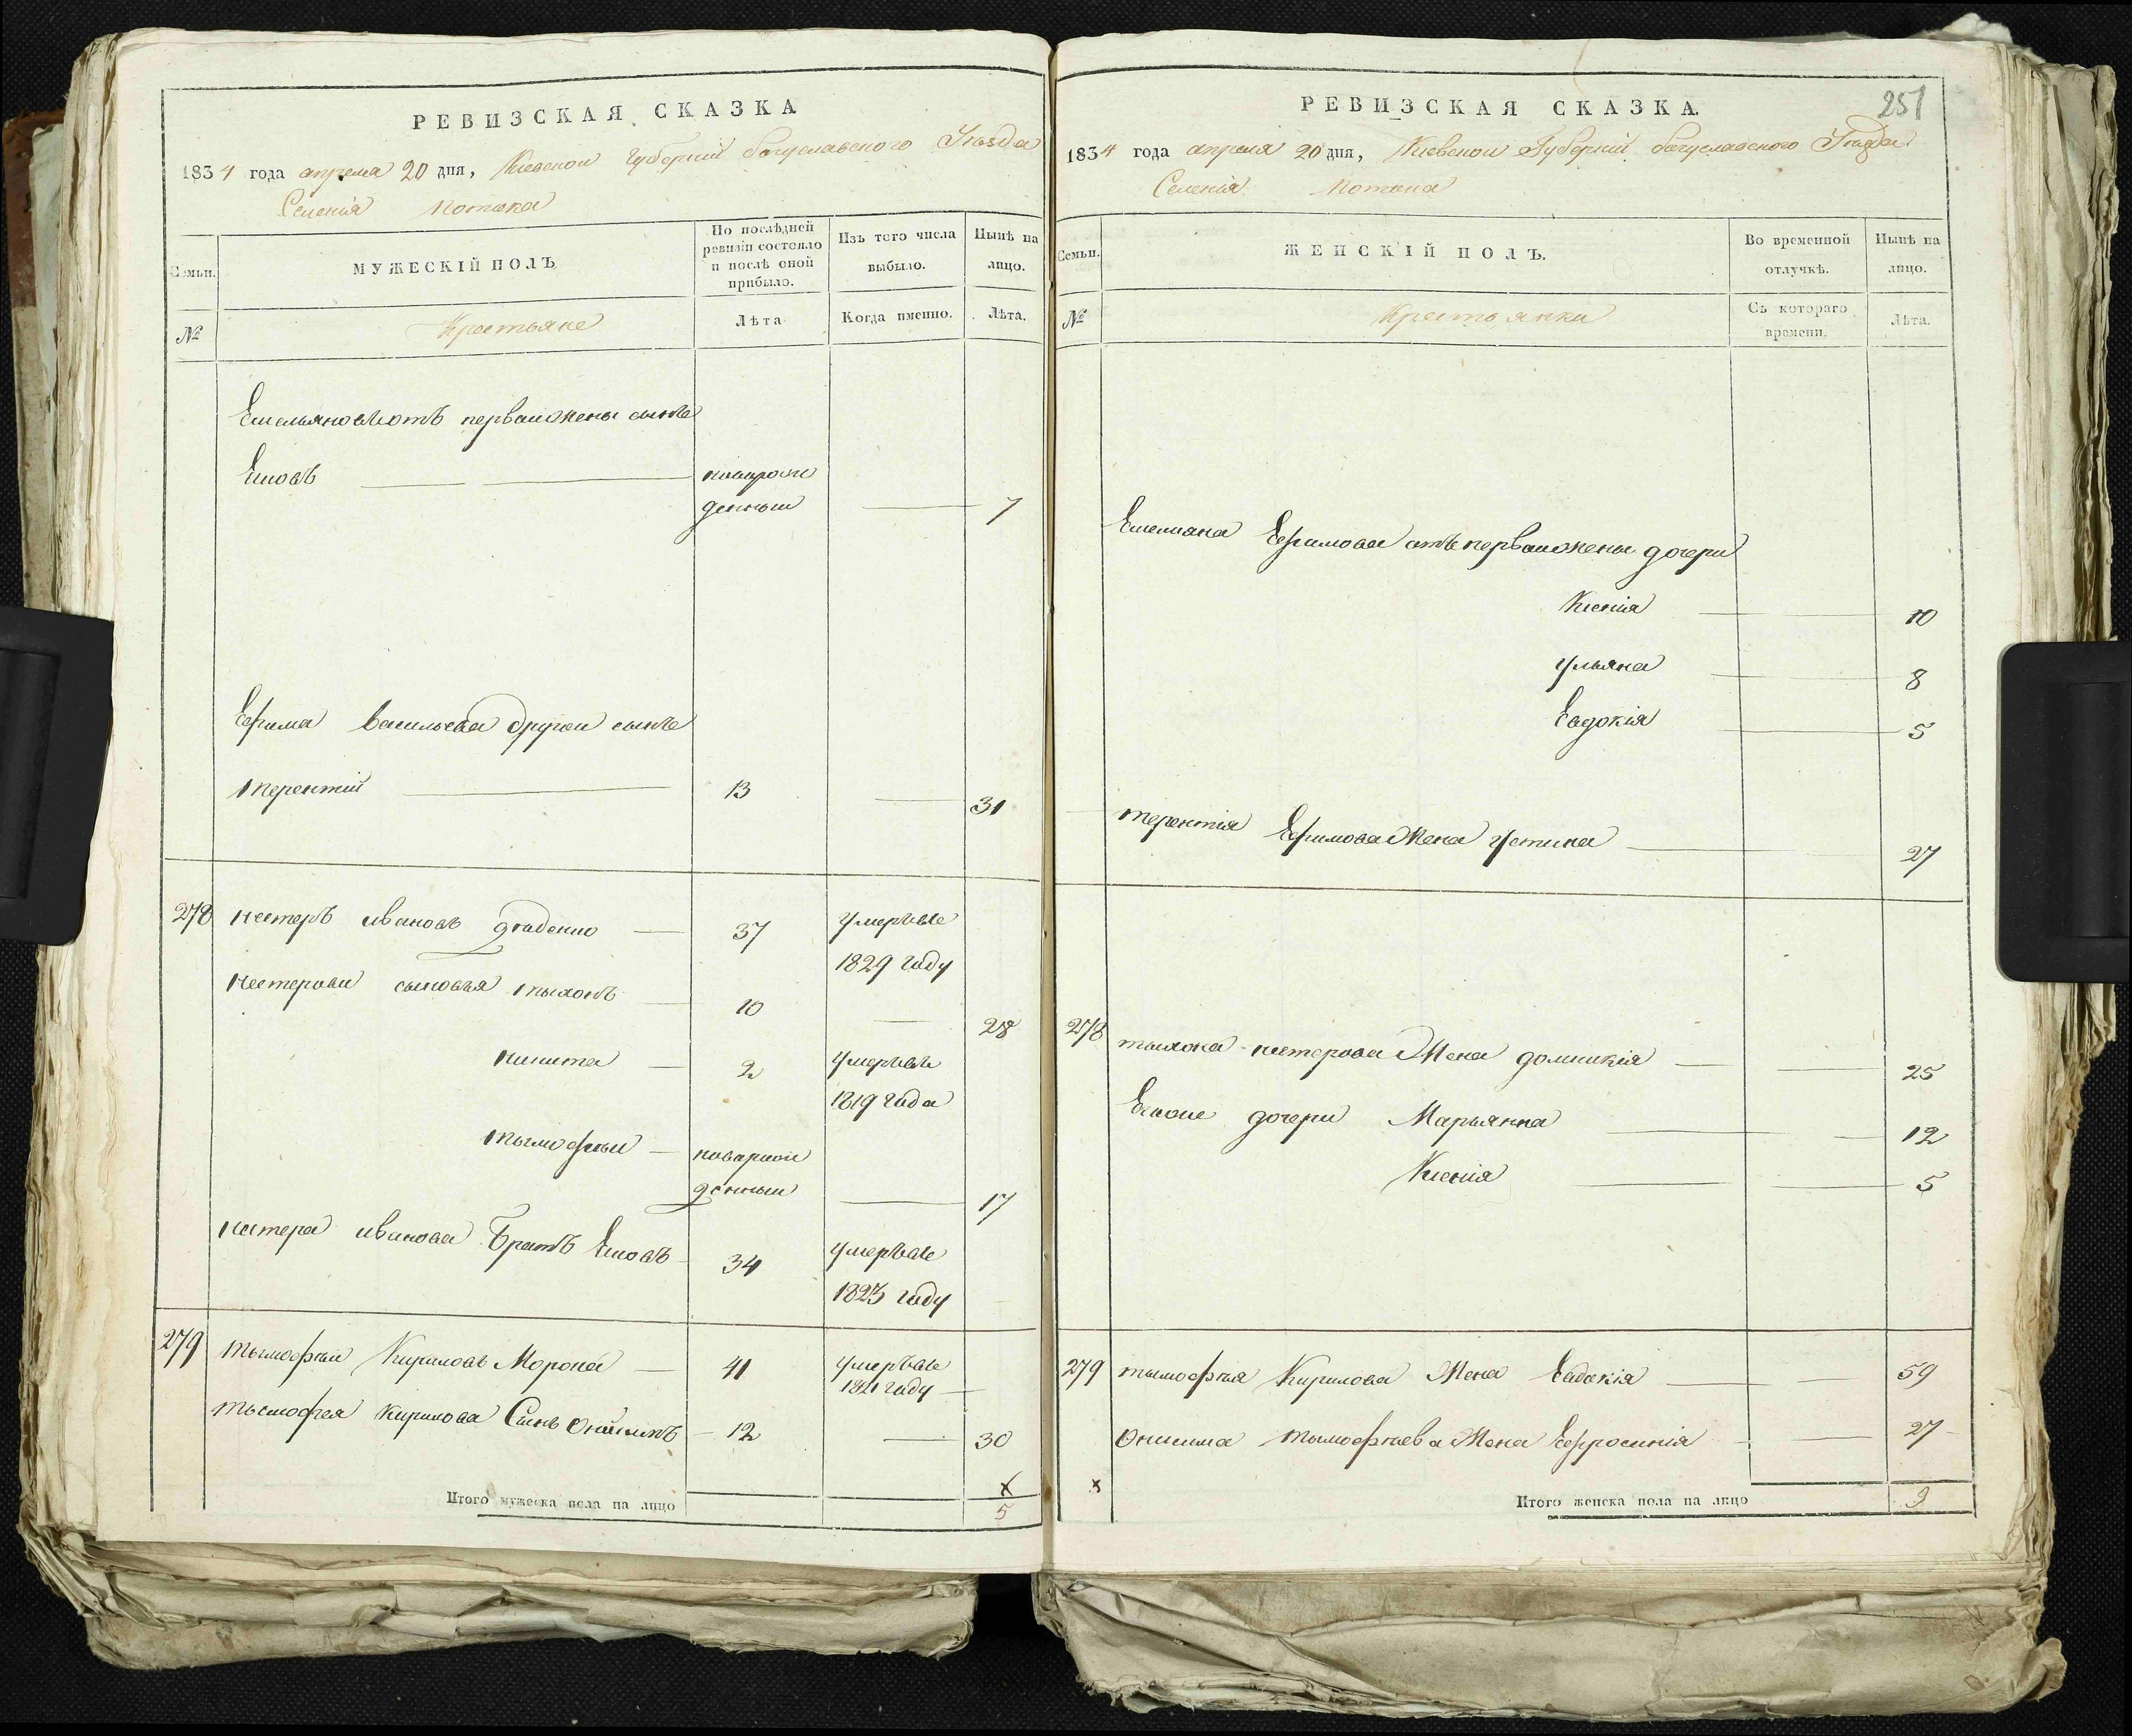 РЕВИЗСКАЯ СКАЗКА
1834 года апреля 20 дня, Киевской Губернии Богуславского Уезда
Селения Потока
Семьи.
МУЖЕСКІЙ ПОЛЪ
По послѣдней ревизіи состояло и послѣ оной прибыло.
Изъ того числа выбыло.
Нынѣ на лицо.
№
Крестьяне
Лѣта
Когда именно.
Лѣта.
Емельяновъ отъ первой жены сынъ
Яковъ новорож
денный 7
Ефима Васильева другой сынъ
Терентій 13 31
278 Нестеръ Ивановъ 37 умерълъ
1829 году
Нестеровы сыновья Тыхонъ 10
28
Никита 2 умерълъ
1819 года
Тымофей новорож
денный 17
Нестера Иванова Братъ Яковъ 34 умерълъ
1823 году
279 Тымофей Кириловъ Морока 41 умерълъ
1821 году
Тымофея Кирилова Сынъ Онисимъ 12 30
Итого мужеска пола на лицо 5
РЕВИЗСКАЯ СКАЗКА.
251
1834 года апреля 20 дня, Киевской Губернии Богуславского Уезда
Селения Потока
Семьи.
ЖЕНСКІЙ ПОЛЪ.
Во временной отлучкѣ.
Нынѣ на лицо.
№
Крестьянки
Съ котораго времени.
Лѣта.
Емелиана Ефимова отъ первой жены дочери
Ксенія 10
Ульяна 8
Евдокія 5
Терентія Ефимова Жена Устина 27
278 Тыхона Нестерова Жена Домникія 25
Еиные дочери Марьянна 12
Ксенія 5
279 Тымофея Кирилова Жена Евдокія 59
Онисима Тымофеева Жена Ефросинія 27
Итого женска пола на лицо 9